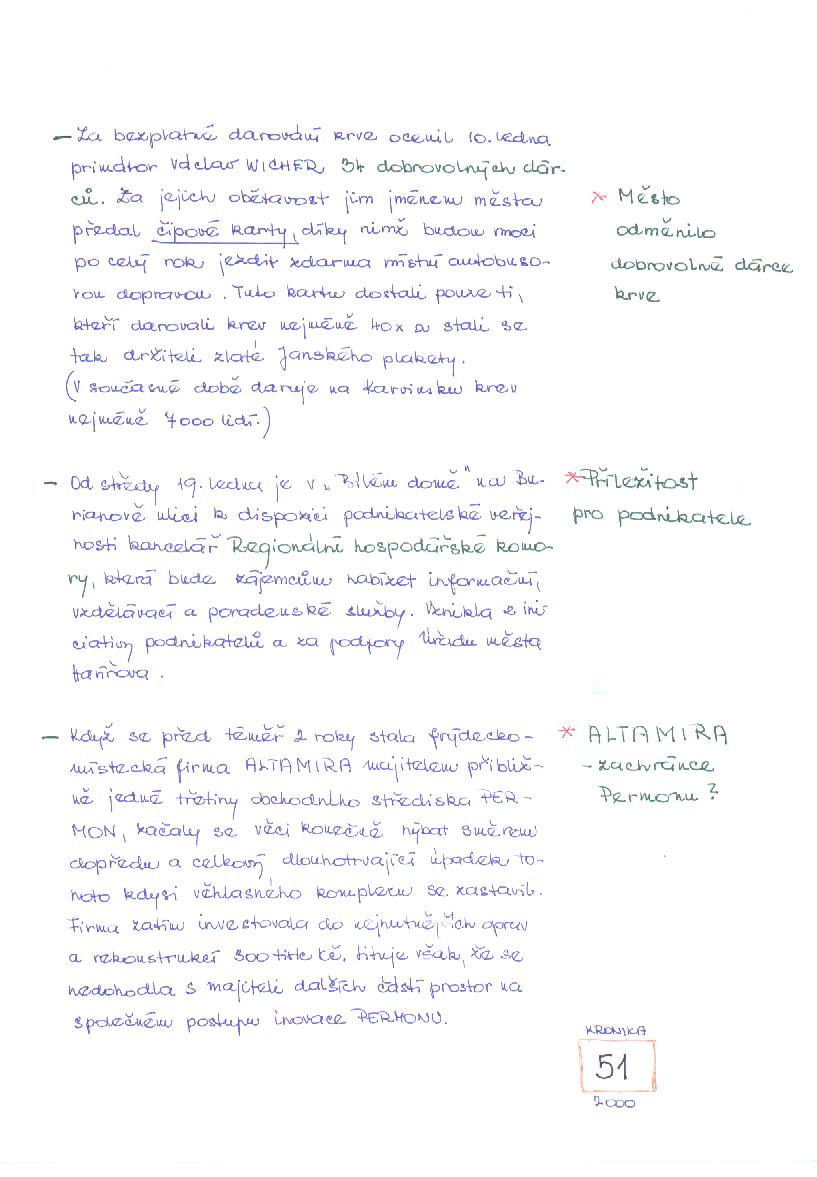 – Za bezplatné darování krve ocenil 10. ledna
primátor Václav WICHER 34 dobrovolných dár-
ců. Za jejich obětavost jim jménem města
předal čipové karty, díky nimž budou moci
po celý rok jezdit zdarma místní autobuso-
vou dopravou. Tuto kartu dostali pouze ti,
kteří darovali krev nejméně 40x a stali se
tak držiteli zlaté Janského plakety.
(V současné době daruje na Karvinsku krev
nejméně 7000 lidí.)
* Město
odměnilo
dobrovolné dárce
krve
– Od středy 19. ledna je v „Bílém domě" na Bu-
rianově ulici k dispozici podnikatelské veřej-
nosti kancelář Regionální hospodářské komo-
ry, která bude zájemcům nabízet informační,
vzdělávací a poradenské služby. Vznikla z ini
ciativy podnikatelů a za podpory Úřadu města
Havířova.
* Příležitost
pro podnikatele
– Když se před téměř 2 roky stala frýdecko-
místecká firma ALTAMIRA majitelem přibliž-
ně jedné třetiny obchodního střediska PER-
MON, začaly se věci konečně hýbat směrem
dopředu a celkový, dlouhotrvající úpadek to-
hoto kdysi věhlasného komplexu se zastavil.
Firma zatím investovala do nejnutnějších oprav
a rekonstrukcí 300 tisíc Kč, lituje však, že se
nedohodla s majiteli dalších částí prostor na
společném postupu inovace PERMONU.
* ALTAMIRA
– zachránce
Permonu?
KRONIKA
51
2000